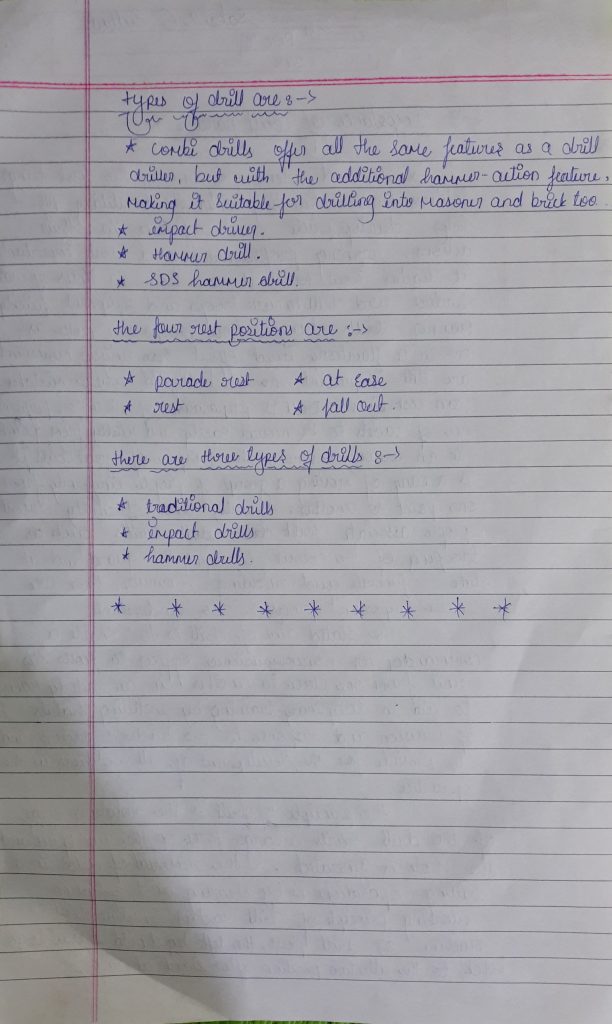 types of drill are :->
* combi drills offer all the same features as a drill
driver, but with the additional hammer-action feature,
making it suitable for drilling into masoner and brick too.
* impact driver.
* Hammer drill.
* SDS hammer drill.
the four rest positions are :->
* parade rest * at ease
* rest * fall out.
there are three types of drills :->
* traditional drills
* impact drills
* hammer drills.
* * * * * * * * *